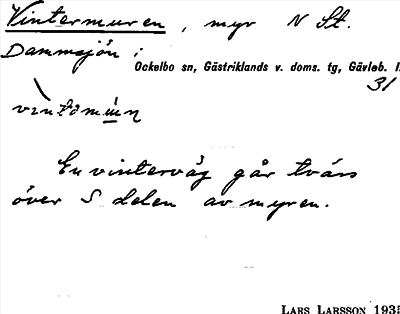 Vintermuren, myr N St.
Dammsjön i
Ockelbo sn, Gästriklands v. doms. tg, Gävleb. l.
31
En vinterväg går tvärs
över S delen av myren.
LARS LARSSON 1935